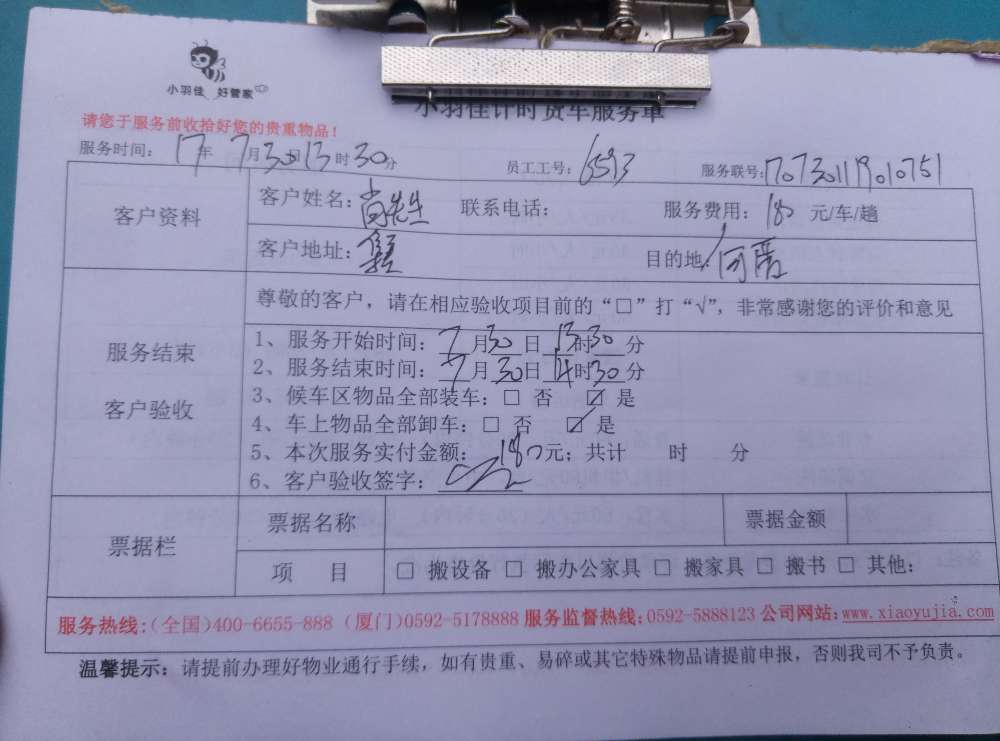 小羽佳 好管家
小羽佳计时货车服务单
请您于服务前收拾好您的贵重物品！
服务时间：17年7月30日13时30分 员工工号：6593 服务联号：170730119010751
客户资料 客户姓名：尚先生 联系电话： 服务费用：180 元/车/趟
客户地址： 目的地：
尊敬的客户，请在相应验收项目前的“□”打“√”，非常感谢您的评价和意见
服务结束 客户验收
1、服务开始时间：7月30日13时30分
2、服务结束时间：7月30日14时30分
3、候车区物品全部装车：□ 否 ☑ 是
4、车上物品全部卸车：□ 否 ☑ 是
5、本次服务实付金额：180元；共计 时 分
6、客户验收签字：
票据栏 票据名称 票据金额
项 目 □ 搬设备 □ 搬办公家具 □ 搬家具 □ 搬书 □ 其他：
服务热线:(全国)400-6655-888 (厦门)0592-5178888 服务监督热线:0592-5888123 公司网站:www.xiaoyujia.com
温馨提示：请提前办理好物业通行手续，如有贵重、易碎或其它特殊物品请提前申报，否则我司不予负责。